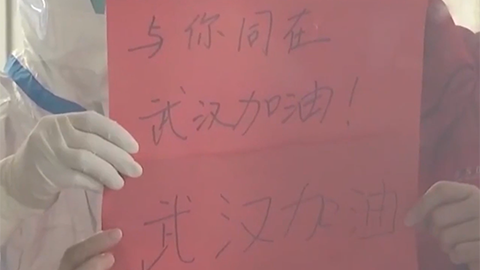 与你同在
武汉加油!
武汉加油